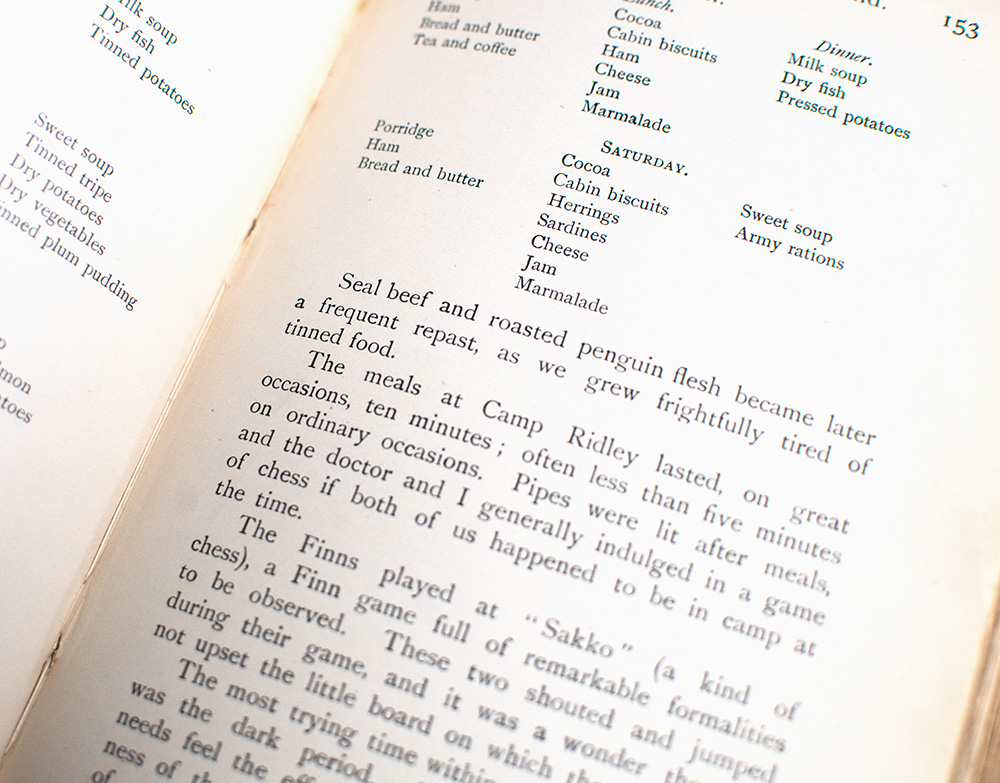 Milk soup
Dry fish
Tinned potatoes
Sweet soup
Tinned tripe
Dry potatoes
Dry vegetables
plum pudding
153
Ham
Bread and butter
Tea and coffee
Lunch.
Cocoa
Cabin biscuits
Ham
Cheese
Jam
Marmalade
Dinner.
Milk soup
Dry fish
Pressed potatoes
SATURDAY.
Porridge
Ham
Bread and butter
Cocoa
Cabin biscuits
Herrings
Sardines
Cheese
Jam
Marmalade
Sweet soup
Army rations
Seal beef and roasted penguin flesh became later
a frequent repast, as we grew frightfully tired of
tinned food.
The meals at Camp Ridley lasted, on great
occasions, ten minutes; often less than five minutes
on ordinary occasions. Pipes were lit after meals,
and the doctor and I generally indulged in a game
of chess if both of us happened to be in camp at
the time.
The Finns played at "Sakko" (a kind of
chess), a Finn game full of remarkable formalities
to be observed. These two shouted and jumped
during their game, and it was a wonder they
not upset the little board on which
The most trying time within
was the dark period.
needs feel the
ness of
of